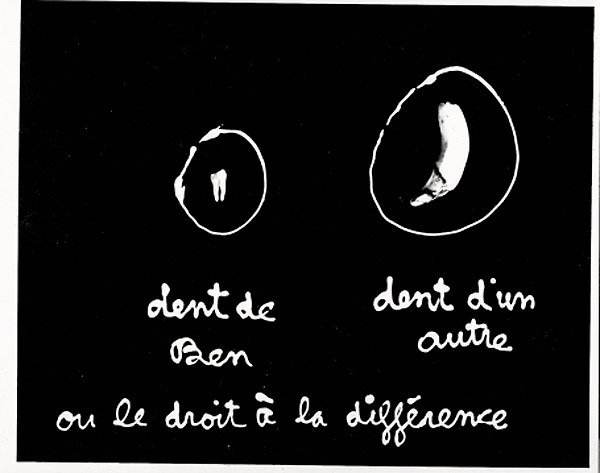 dent de
Ben
dent d'un
autre
ou le droit à la différence